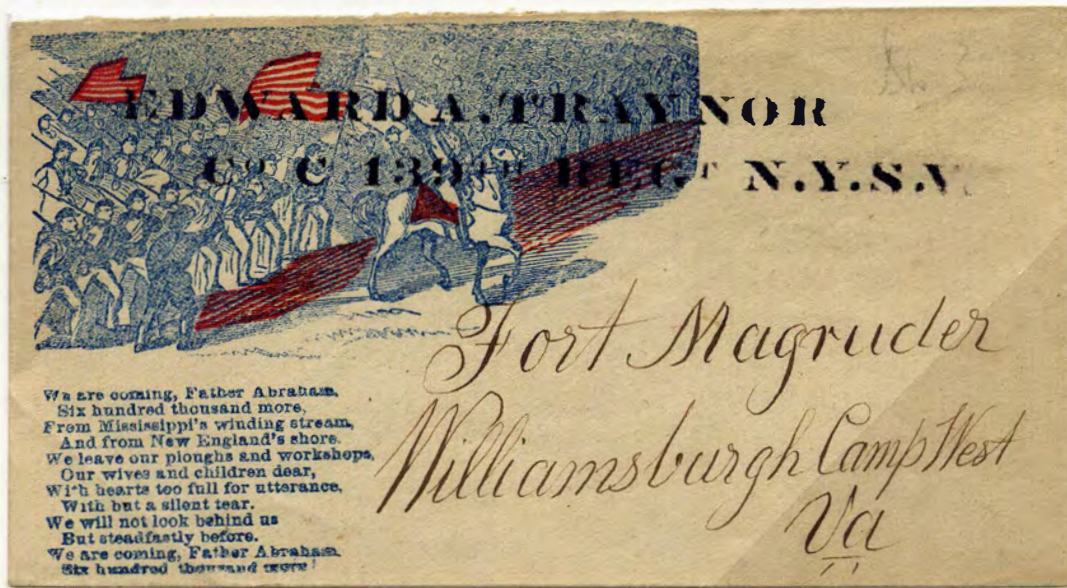 EDWARD A. TRAYNOR
Co C 139TH REGT N.Y.S.V
Fort Magruder
Williamsburgh Camp West
Va
We are coming, Father Abraham,
Six hundred thousand more,
From Mississippi's winding stream,
And from New England's shore.
We leave our ploughs and workshops,
Our wives and children dear,
With hearts too full for utterance,
With but a silent tear.
We will not look behind us
But steadfastly before.
We are coming, Father Abraham
Six hundred thousand more!